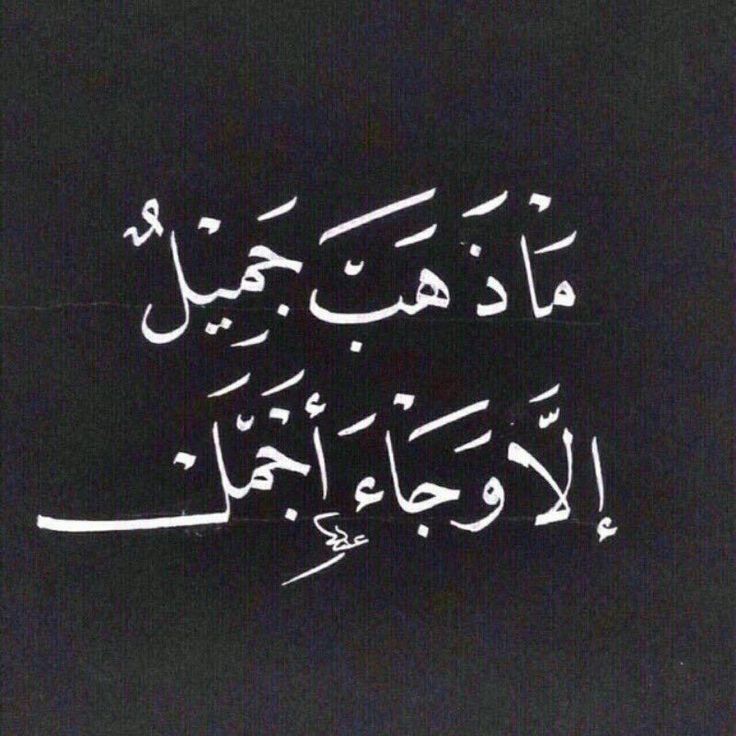 مَاْ ذَهَبَّ جَمِيْلٌ
إلَّا وَجَاْءَ أَجْمَّلْ